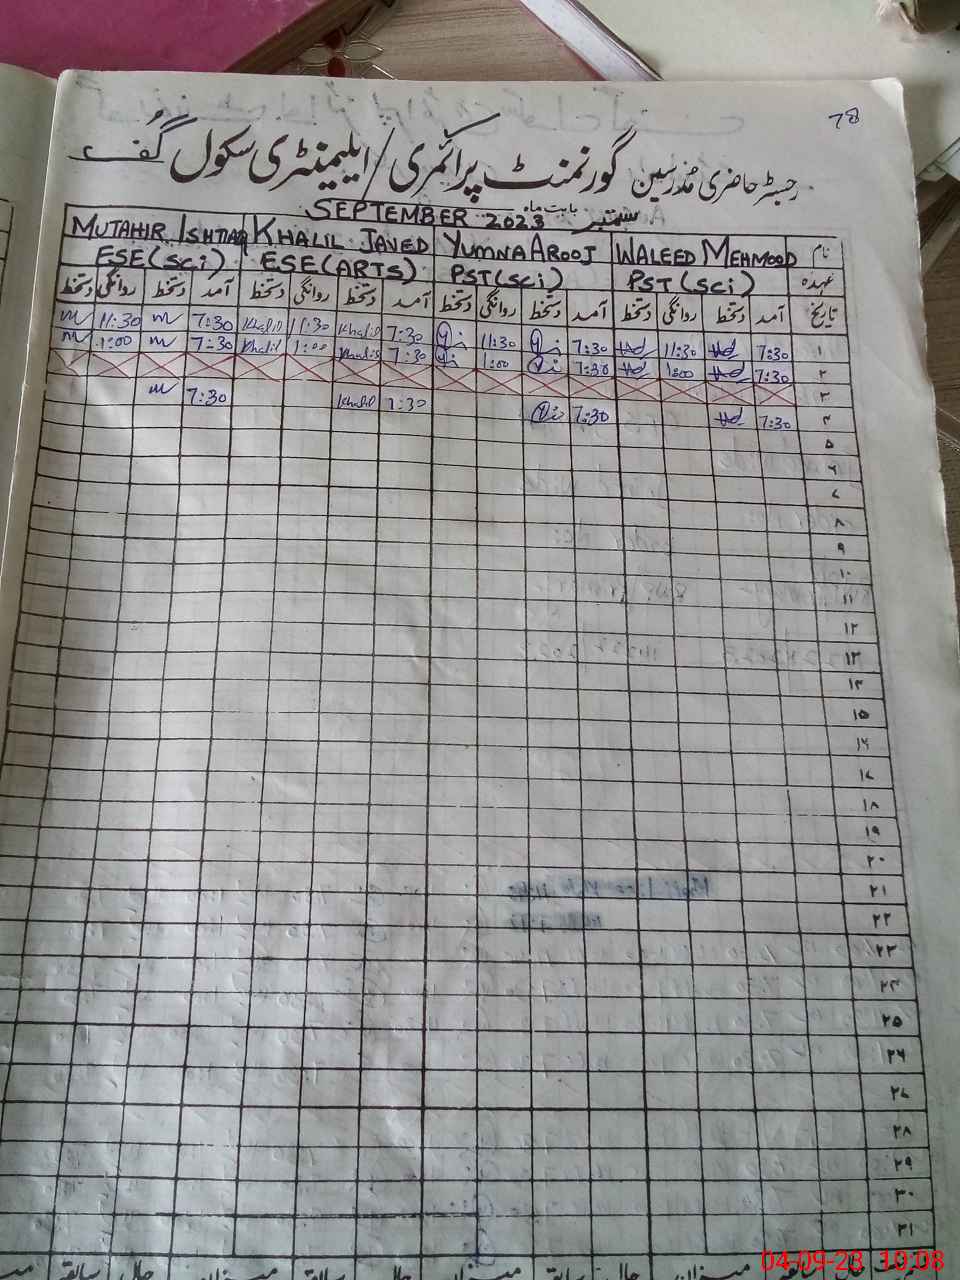 78
رجسٹر حاضری مدرسین گورنمنٹ پرائمری/ایلیمنٹری سکول گف
بابت ماہ ستمبر SEPTEMBER 2023
نام WALEED MEHMOOD YUMNA AROOJ KHALIL JAVED MUTAHIR ISHTIAQ
عہدہ PST(SCI) PST(SCI) ESE(ARTS) ESE(SCI)
تاریخ آمد دستخط روانگی دستخط آمد دستخط روانگی دستخط آمد دستخط روانگی دستخط آمد دستخط روانگی دستخط
۱ 7:30 11:30 7:30 11:30 7:30 Khalil 11:30 Khalil 7:30 m 11:30 m
۲ 7:30 1:00 7:30 1:00 7:30 Khalil 1:00 Khalil 7:30 m 1:00 m
۳
۴ 7:30 7:30 7:30 Khalil 7:30 m
۵
۶
۷
۸
۹
۱۰
۱۱
۱۲
۱۳
۱۴
۱۵
۱۶
۱۷
۱۸
۱۹
۲۰
۲۱
۲۲
۲۳
۲۴
۲۵
۲۶
۲۷
۲۸
۲۹
۳۰
۳۱
میزان حال سابقہ میزان حال سابقہ میزان حال سابقہ
04-09-23 10:08